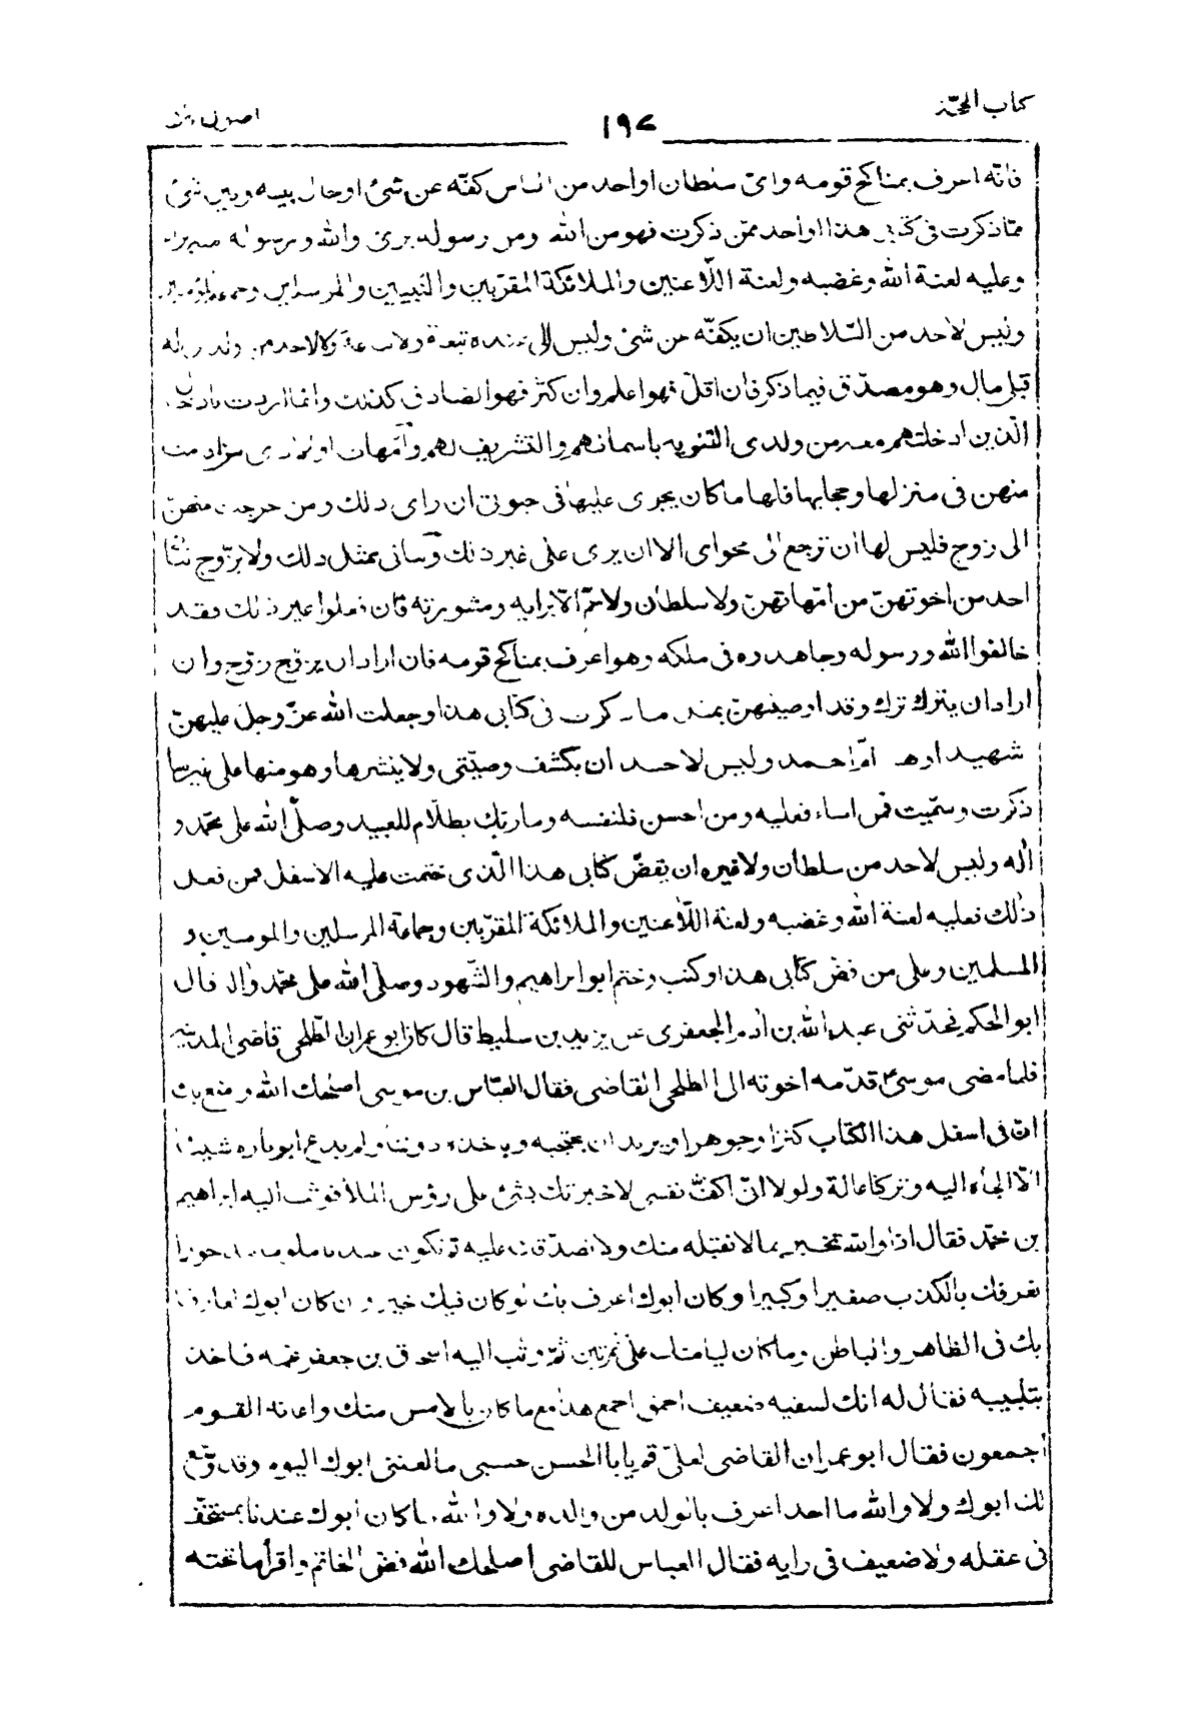 كتاب الحجّة
١٩٧
فانّه اعرف بمناكح قومه واىّ سلطان او احد من الناس كفّه عن شئ او حال بينه وبين شئ
ممّا ذكرت فى كتابى هذا او احد ممّن ذكرت فهو من الله ومن رسوله برئ والله ورسوله منه براء
وعليه لعنة الله وغضبه ولعنة اللّاعنين والملائكة المقرّبين والنّبيين والمرسلين وجماعة المؤمنين
وليس لاحد من السّلاطين ان يكفّه عن شئ وليس لى عنده تبعة ولا تباعة ولا لاحد من ولدى له
قبلى مال وهو مصدّق فيما ذكر فان اقلّ فهو اعلم وان كثر فهو الصّادق كذلك وانما اردت بادخال
الّذين ادخلتهم معه من ولدى التنويه باسمائهم والتشريف لهم وامّهات اولادى من اقامت
منهن فى منزلها وحجابها فلها ما كان يجرى عليها فى حيوتى ان راى ذلك ومن خرجت منهنّ
الى زوج فليس لها ان ترجع الى محواى الا ان يرى علىّ غير ذلك وبناتى بمثل ذلك ولا يزوّج بناتى
احد من اخوتهنّ من امّهاتهنّ ولا سلطان ولا عمّ الّا برايه ومشورته فان فعلوا غير ذلك فقد
خالفوا الله ورسوله وجاهدوه فى ملكه وهو اعرف بمناكح قومه فان اراد ان يزوّج زوّج وان
اراد ان يترك ترك وقد اوصيتهنّ بمثل ما ذكرت فى كتابى هذا وجعلت الله عزّ وجلّ عليهنّ
شهيدا وهو وامّ احمد وليس لاحد ان يكشف وصيّتى ولا ينشرها وهو منها على غير ما
ذكرت وسمّيت فمن اساء فعليه ومن احسن فلنفسه وما ربّك بظلّام للعبيد وصلّى الله على محمّد و
آله وليس لاحد من سلطان ولا غيره ان يفضّ كتابى هذا الّذى ختمت عليه الاسفل فمن فعل
ذلك فعليه لعنة الله وغضبه ولعنة اللّاعنين والملائكة المقرّبين وجماعة المرسلين والمؤمنين و
المسلمين وعلى من فضّ كتابى هذا وكتب وختم ابو ابراهيم والشّهود وصلّى الله على محمّد وآله قال
ابو الحكم فحدّثنى عبد الله بن آدم الجعفرى عن يزيد بن سليط قال كان ابو عمران الطّلحى قاضى المدينة
فلما مضى موسىؑ قدّمه اخوته الى الطلحى القاضى فقال العبّاس بن موسى اصلحك الله وامتع بك
انّ فى اسفل هذا الكتاب كنزا وجوهرا ويريد ان يحتجبه وياخذه دوننا ولم يدع ابونا ره شيئا
الّا الجأه اليه وتركنا عالة ولولا انّى اكفّ نفسى لاخبرتك بشئ على رؤس الملأ فوثب اليه ابراهيم
بن محمّد فقال اذا والله تخبر بما لا نقبله منك ولا نصدّقك عليه ثم تكون عندنا ملوما مدحورا
نعرفك بالكذب صغيرا وكبيرا وكان ابوك اعرف بك لو كان فيك خير وان كان ابوك لعارفا
بك فى الظاهر والباطن وما كان ليامنك على تمرتين ثمّ وثب اليه اسحق بن جعفر عمّه فاخذ
بتلبيبه فقال له انك لسفيه ضعيف احمق اجمع هذا مع ما كان بالامس منك واعانه القوم
اجمعون فقال ابو عمران القاضى لعلىّ قم يا ابا الحسن حسبى ما لعننى ابوك اليوم وقد وسّع
لك ابوك ولا والله ما احد اعرف بالولد من والده ولا والله ما كان ابوك عندنا بمستخفّ
فى عقله ولا ضعيف فى رايه فقال العباس للقاضى اصلحك الله فضّ الخاتم واقرأ ما تحته